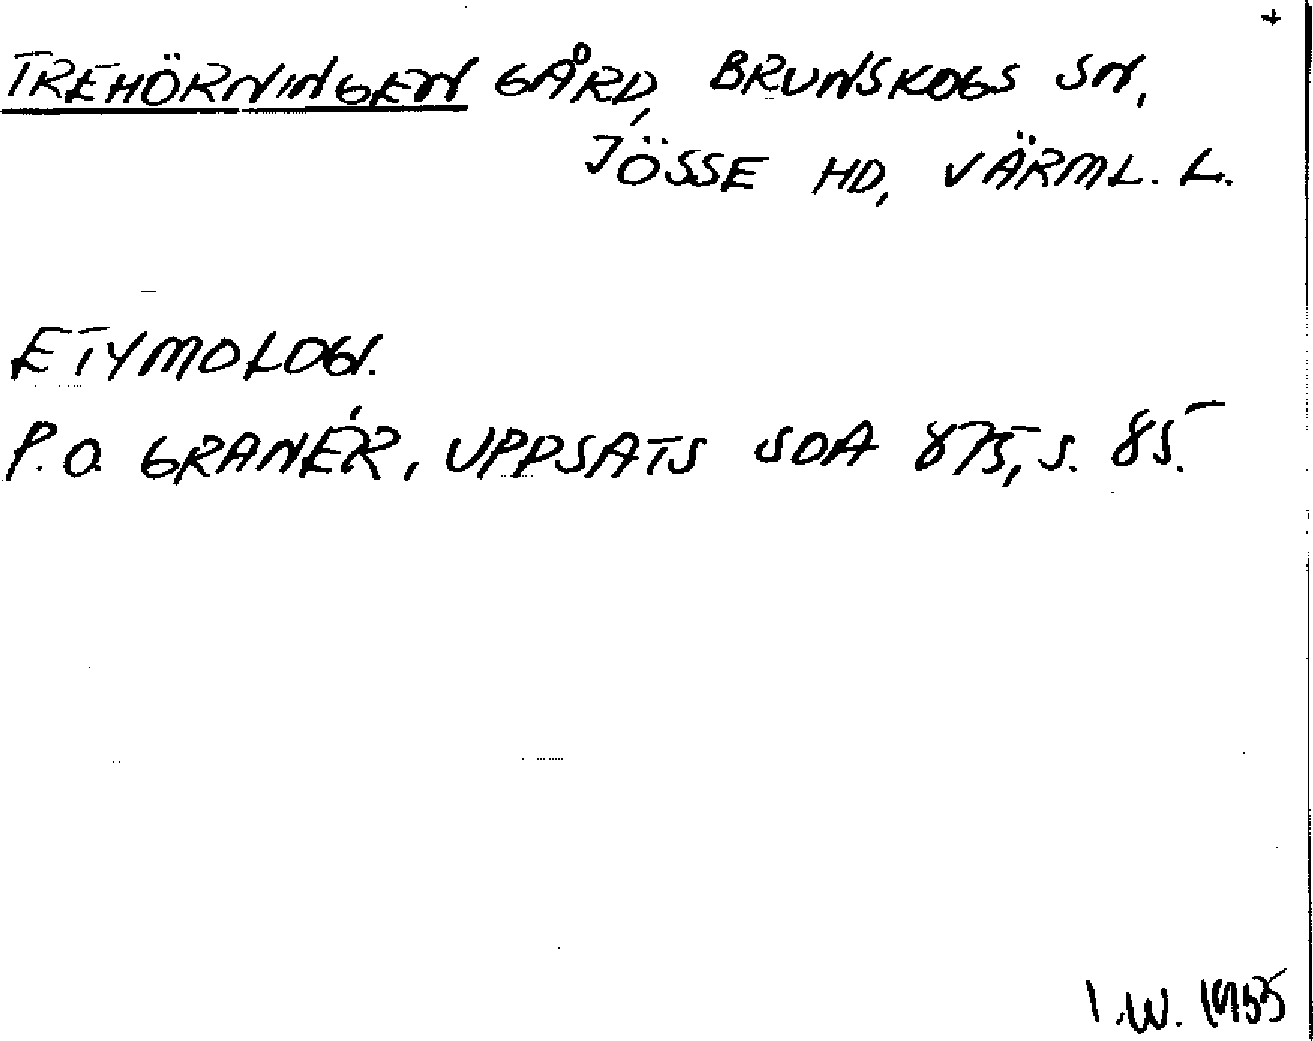 +
TREHÖRNINGEN GÅRD, BRUNSKOGS SN,
JÖSSE HD, VÄRML. L.
ETYMOLOGI.
P.O. GRANÉR, UPPSATS SOA 875, S. 85.
I.W. 1955